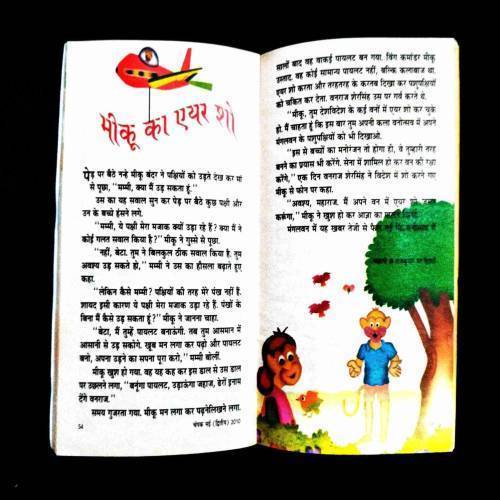 मीकू का एयर शो
पेड़ पर बैठे नन्हे मीकू बंदर ने पक्षियों को उड़ते देख कर मां
से पूछा, ''मम्मी, क्या मैं उड़ सकता हूं.''
उस का यह सवाल सुन कर पेड़ पर बैठे कुछ पक्षी और
उन के बच्चे हंसने लगे.
''मम्मी, ये पक्षी मेरा मजाक क्यों उड़ा रहे हैं? क्या मैं ने
कोई गलत सवाल किया है?'' मीकू ने गुस्से से पूछा.
''नहीं, बेटा. तुम ने बिलकुल ठीक सवाल किया है. तुम
अवश्य उड़ सकते हो,'' मम्मी ने उस का हौसला बढ़ाते हुए
कहा.
''लेकिन कैसे मम्मी? पक्षियों की तरह मेरे पंख नहीं हैं.
शायद इसी कारण ये पक्षी मेरा मजाक उड़ा रहे हैं. पंखों के
बिना मैं कैसे उड़ सकता हूं?'' मीकू ने जानना चाहा.
''बेटा, मैं तुम्हें पायलट बनाऊंगी. तब तुम आसमान में
आसानी से उड़ सकोगे. खूब मन लगा कर पढ़ो और पायलट
बनो, अपना उड़ने का सपना पूरा करो,'' मम्मी बोलीं.
मीकू खुश हो गया. वह यह कह कर इस डाल से उस डाल
पर उछलने लगा, ''बनूंगा पायलट, उड़ाऊंगा जहाज, ढेरों इनाम
देंगे वनराज.''
समय गुजरता गया. मीकू मन लगा कर पढ़नेलिखने लगा.
54
चंपक मई (द्वितीय) 2010
सालों बाद वह वाकई पायलट बन गया. विंग कमांडर मीकू
उस्ताद. वह कोई सामान्य पायलट नहीं, बल्कि कलाबाज था.
एयर शो करता और तरहतरह के करतब दिखा कर पशुपक्षियों
को चकित कर देता. वनराज शेरसिंह उस पर गर्व करते थे.
''मीकू, तुम देशविदेश के कई वनों में एयर शो कर चुके
हो. मैं चाहता हूं कि इस बार तुम अपनी कला वनोत्सव में अपने
मंगलवन के पशुपक्षियों को भी दिखाओ.
''इस से बच्चों का मनोरंजन तो होगा ही, वे तुम्हारी तरह
बनने का प्रयास भी करेंगे. सेना में शामिल हो कर वन की रक्षा
करेंगे,'' एक दिन वनराज शेरसिंह ने विदेश में शो करने गए
मीकू से फोन पर कहा.
''अवश्य, महाराज. मैं अपने वन में एयर शो
करूंगा,'' मीकू ने खुश हो कर आज्ञा का
मंगलवन में यह खबर तेजी से फैल गई कि वनोत्सव में